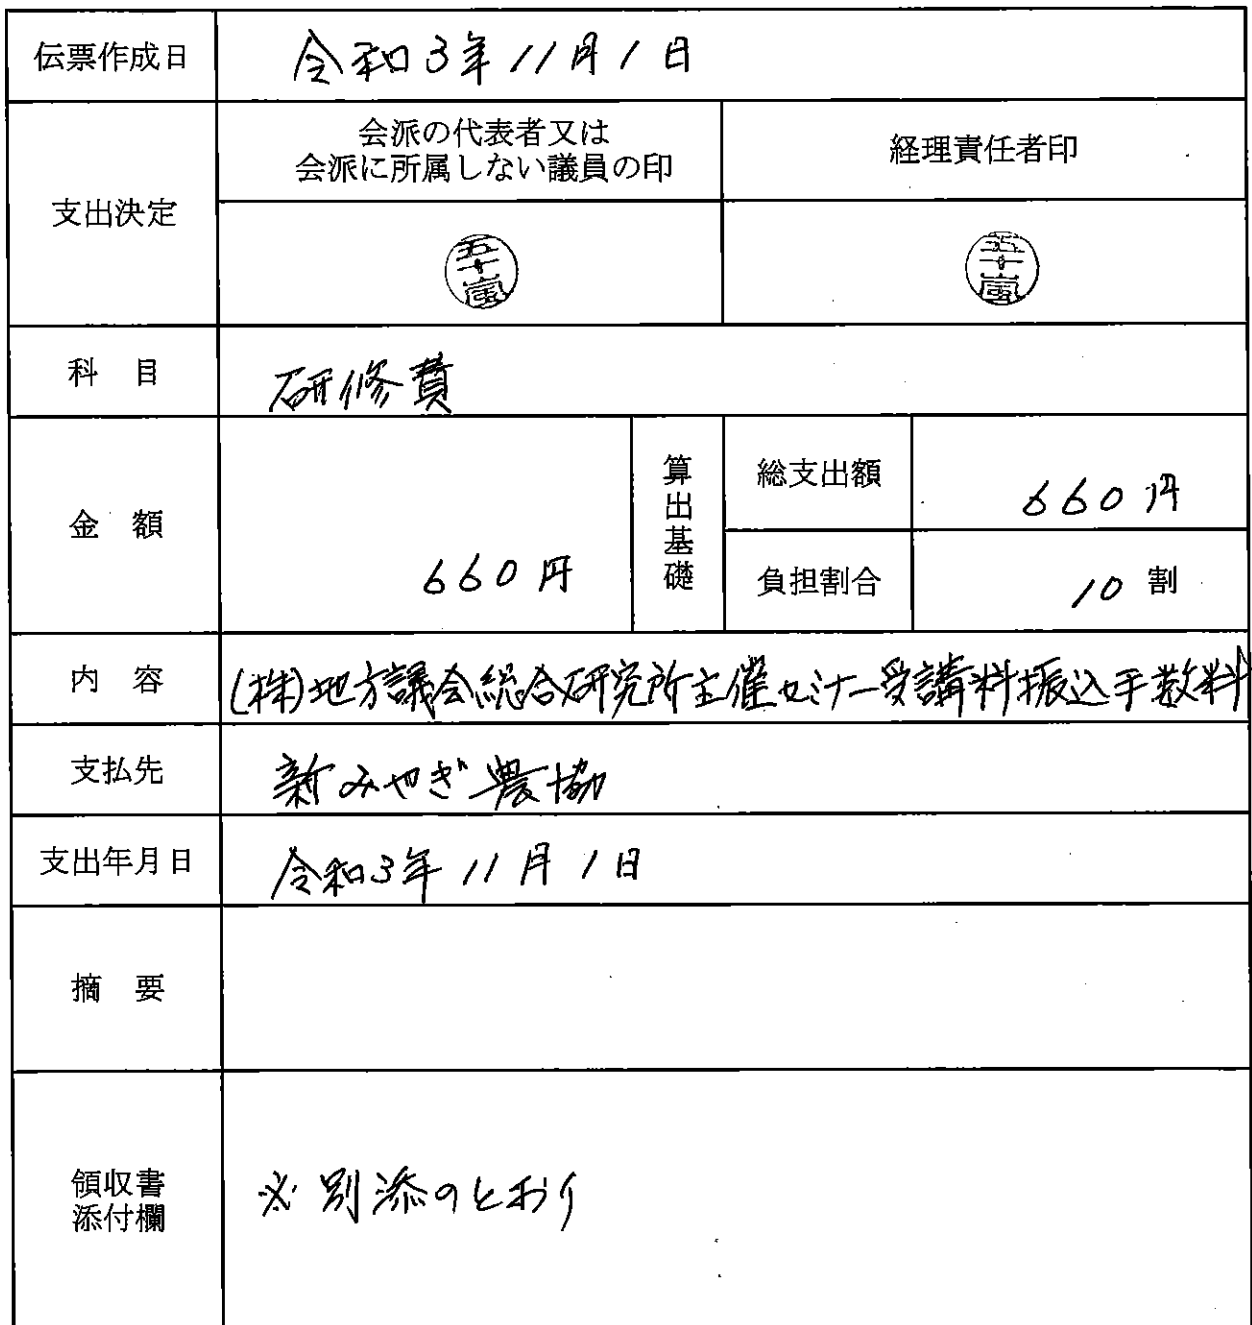 伝票作成日
令和3年11月1日
支出決定
会派の代表者又は
会派に所属しない議員の印
経理責任者印
五十嵐
五十嵐
科 目
研修費
金 額
660円
算出基礎
総支出額
660円
負担割合
10割
内 容
(株)地方議会総合研究所主催セミナー受講料振込手数料
支払先
新みやぎ農協
支出年月日
令和3年11月1日
摘 要
領収書
添付欄
※別添のとおり